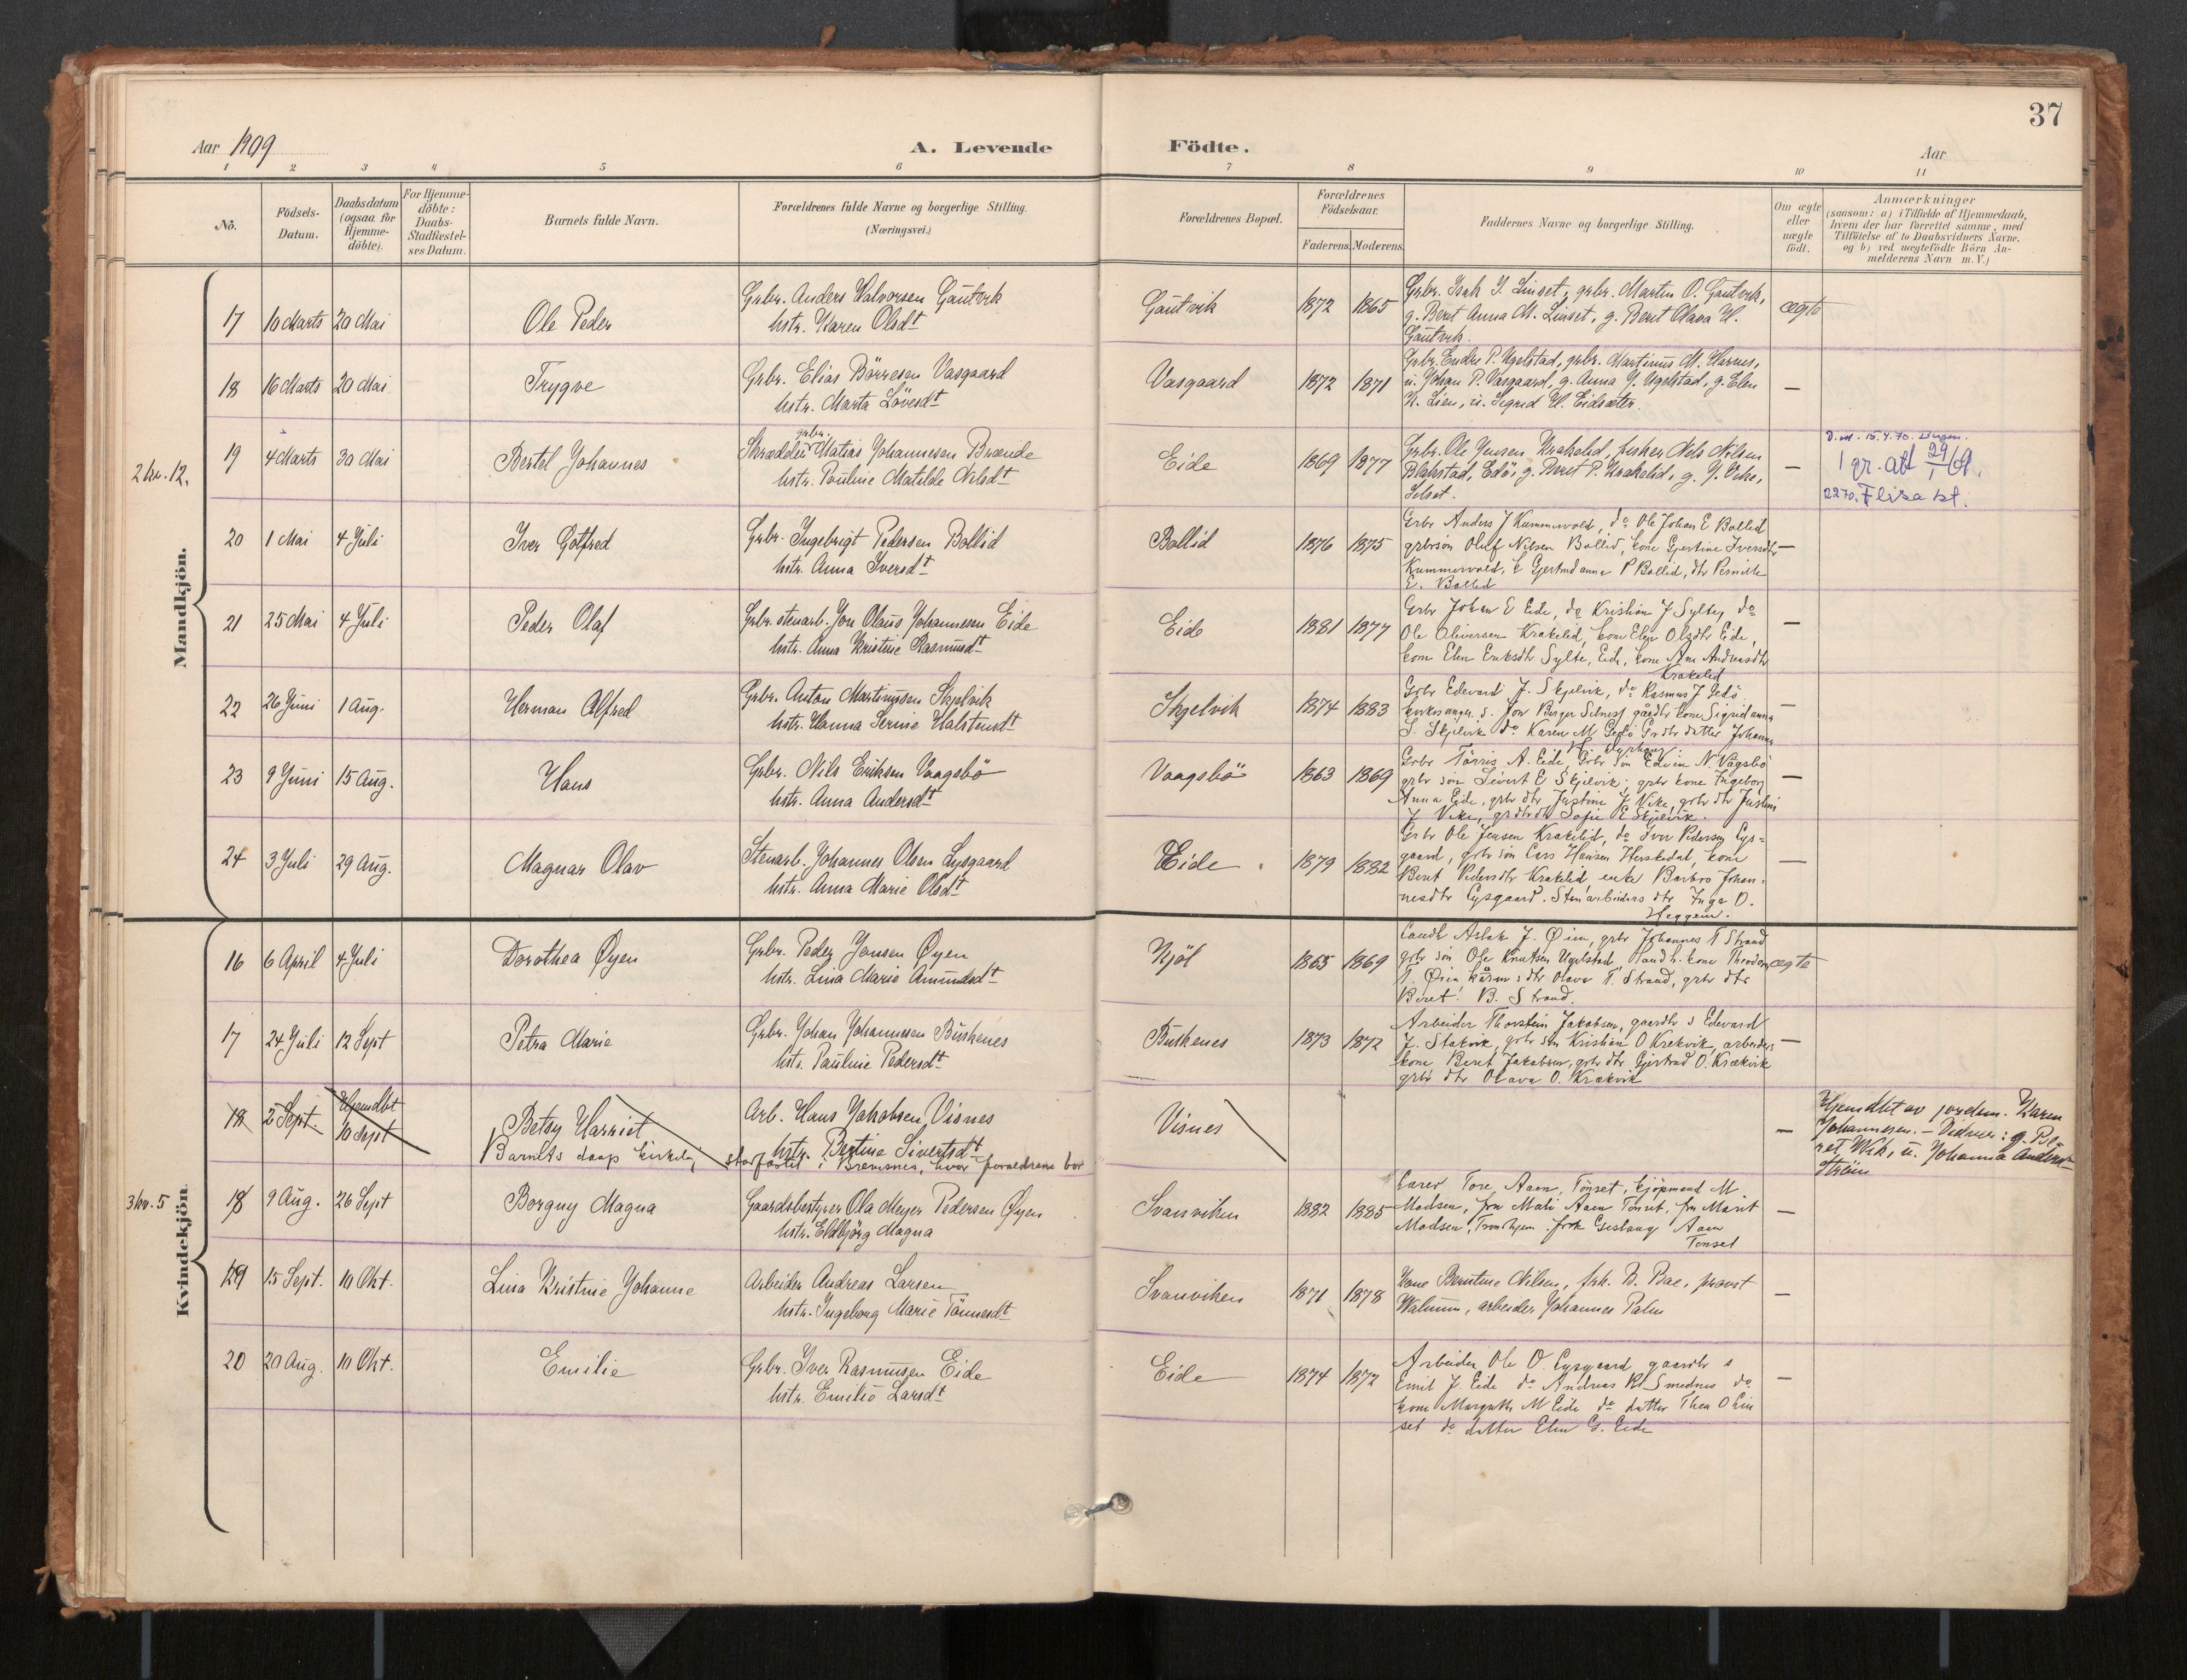 37
Aar 1909
A. Levende Födte.
Aar
1 2 3 4 5 6 7 8 9 10 11
No.
Födsels-Datum.
Daabsdatum (ogsaa for Hjemme-döbte).
For Hjemme-döbte: Daabs-Stadfæstel-ses Datum.
Barnets fulde Navn.
Forældrenes fulde Navne og borgerlige Stilling. (Næringsvei.)
Forældrenes Bopæl.
Forældrenes Födselsaar.
Faderens. Moderens.
Faddernes Navne og borgerlige Stilling.
Om ægte eller uægte födt.
Anmærkninger
(saasom: a) i Tilfælde af Hjemmedaab,
hvem der har forrettet samme, med
Tilföielse af to Daabsvidners Navne,
og b) ved uægtefödte Börn An-
melderens Navn m. V.)
Mandkjön.
17 10 Marts 20 Mai Ole Peder
Grbr. Anders Halvorsen Gautvik
hstr. Karen Olsdt
Gautvik 1872 1865
Grbr. Isak J. Linset, grbr. Martin O. Gautvik,
g. Berit Anna M. Linset, g. Berit Olava H.
Gautvik.
ægte
18 16 Marts 20 Mai Trygve
Grbr. Elias Börresen Vasgaard
hstr. Marta Lövesdt
Vasgaard 1872 1871
Grbr. Endre P. Ugelstad, grbr. Martinus M. Harnes,
u. Johan P. Vasgaard, g. Anna J. Ugelstad, g. Elen
N. Lien, u. Sigrid H. Eidsæter.
—
2 kv. 12.
19 4 Marts 30 Mai Bertel Johannes
Skrædder grbr. Matias Johannesen Brænde
hstr. Pauline Matilde Nilsdt
Eide 1869 1877
Grbr. Ole Jensen Krakelid, fisker Nels Nilsen
Blakstad, Edö, g. Berit P. Krakelid, g. J. Vike,
Silset.
—
D. att. 15.4.70.
1 gr. att 29/1 69.
2270. Flisa st.
20 1 Mai 4 Juli Iver Gotfred
Grbr. Ingebrigt Pedersen Bollid
hstr. Anna Iversdt
Bollid 1876 1875
Grbr Anders J Kummervold, do Ole Johan E Bollid
grbrsön Oluf Nilsen Bollid, kone Gjertine Iversdtr
Kummervold, k Gjertrud anna P Bollid, dtr Pernille
E. Bollid
—
21 25 Mai 4 Juli Peder Olaf
Grbr. stenarb. Jon Olaus Johannesen Eide
hstr. Anna Kristine Rasmusdt
Eide 1881 1877
Grbr Johan E Eide, do Kristian J Sylte, do
Ole Oliversen Krakelid, kone Elen Olsdtr Eide,
kone Elen Eriksdtr Sylte, Eide, kone Ane Andreasdtr
Krakelid
—
22 26 Juni 1 Aug. Herman Alfred
Grbr. Anton Martinusen Skjelvik
hstr. Hanna Serine Halstensdt
Skjelvik 1874 1883
Grbr Edevard J. Skjelvik, do Rasmus J Gedö
kirkesanger s. Jon Birger Silnes, gårdbr kone Sigrid anna
S. Skjelvik do Karen M Gedö Grdbr datter Johanna
—
23 9 Juni 15 Aug. Hans
Grbr. Nils Eriksen Vaagsbö
hstr. Anna Andersdt
Vaagsbö 1863 1869
Grbr Törris A. Eide, Grbr sön Edvin N. Vågsbö
grbr sön Sivert E Skjelvik; grbr kone Ingebor
Anna Eide, grbr dtr Justine J Vike, grbr dtr Justine
J Vike, grdbrdtr Sofie E Skjelvik.
—
24 3 Juli 29 Aug. Magnar Olav
Stenarb. Johannes Olsen Lysgaard
hstr. Anna Marie Olsdt
Eide 1879 1882
Grbr Ole Jensen Krakelid, do Iver Pedersen Lys-
gaard, grbr sön Lars Hansen Herskedal, kone
Berit Pedersdtr Krakelid enke Barbro Johan-
nesdtr Lysgaard. Stenarbeiders dtr Inga O.
Heggem.
—
Kvindekjön.
16 6 April 4 Juli Dorothea Øyen
Grbr. Peder Jonsen Øyen
hstr. Lina Marie Amundsdt
Kjöl 1865 1869
Landh Aslak J. Øien, grbr Johannes T Strand
grbr sön Ole Knutsen Ugelstad, Landh. kone Theodora
T. Øien, kårm s dtr Olava T. Strand, grbr dtr
Beret B. Strand.
ægte
17 24 Juli 12 Sept Petra Marie
Grbr. Johan Johannesen Buskenes
hstr. Pauline Pedersdt
Buskenes 1873 1872
Arbeider Thorstein Jakobsen, gaardbr s Edevard
J. Stakvik, grbr sön Kristian O Krekvik, arbeiders
kone Beret Jakobsen, grbr dtr Gjertrud O. Krækvik
grbr dtr Olava O. Krækvik
—
18 2 Sept. Hjemdbt 10 Sept Betsy Harriet
Arb. Hans Jakobsen Visnes
hstr. Bertine Sivertsdt
Barnets daap kirkelig stadfæstet i Bremsnes, hvor forældrene bor
Visnes
—
Hjemdbt av jordem. Karen
Johannesen. - Vidner: g. Be-
ret Wik, u. Johanna Anders-
Ström
3 kv. 5
18 9 Aug. 26 Sept Borgny Magna
Gaardsbestyrer Ola Meyer Pedersen Øyen
hstr. Eldbjörg Magna
Svanviken 1882 1885
Lærer Tore Aaen, Tönset, kjöpmand M
Madsen, fru Mali Aaen Tönset, fru Marit
Madsen, Tronhjem. frk Gislaug Aaen
Tönset
—
19 15 Sept. 10 Okt. Lina Kristine Johanne
Arbeider Andreas Larsen
hstr. Ingeborg Marie Tönnesdt
Svanviken 1871 1878
Kone Berntine Nilsen, frk. B. Bae, provst
Walnum, arbeider Johannes Palm
—
20 20 Aug. 10 Okt. Emilie
Grbr. Iver Rasmusen Eide
hstr. Emilie Larsdt
Eide 1874 1872
Arbeider Ole O. Lysgaard, gaardbr s
Emil J. Eide do Andreas Kl Smednes do
kone Margrethe M Eide do datter Thea O Lin
set do datter Elen G. Eide
—